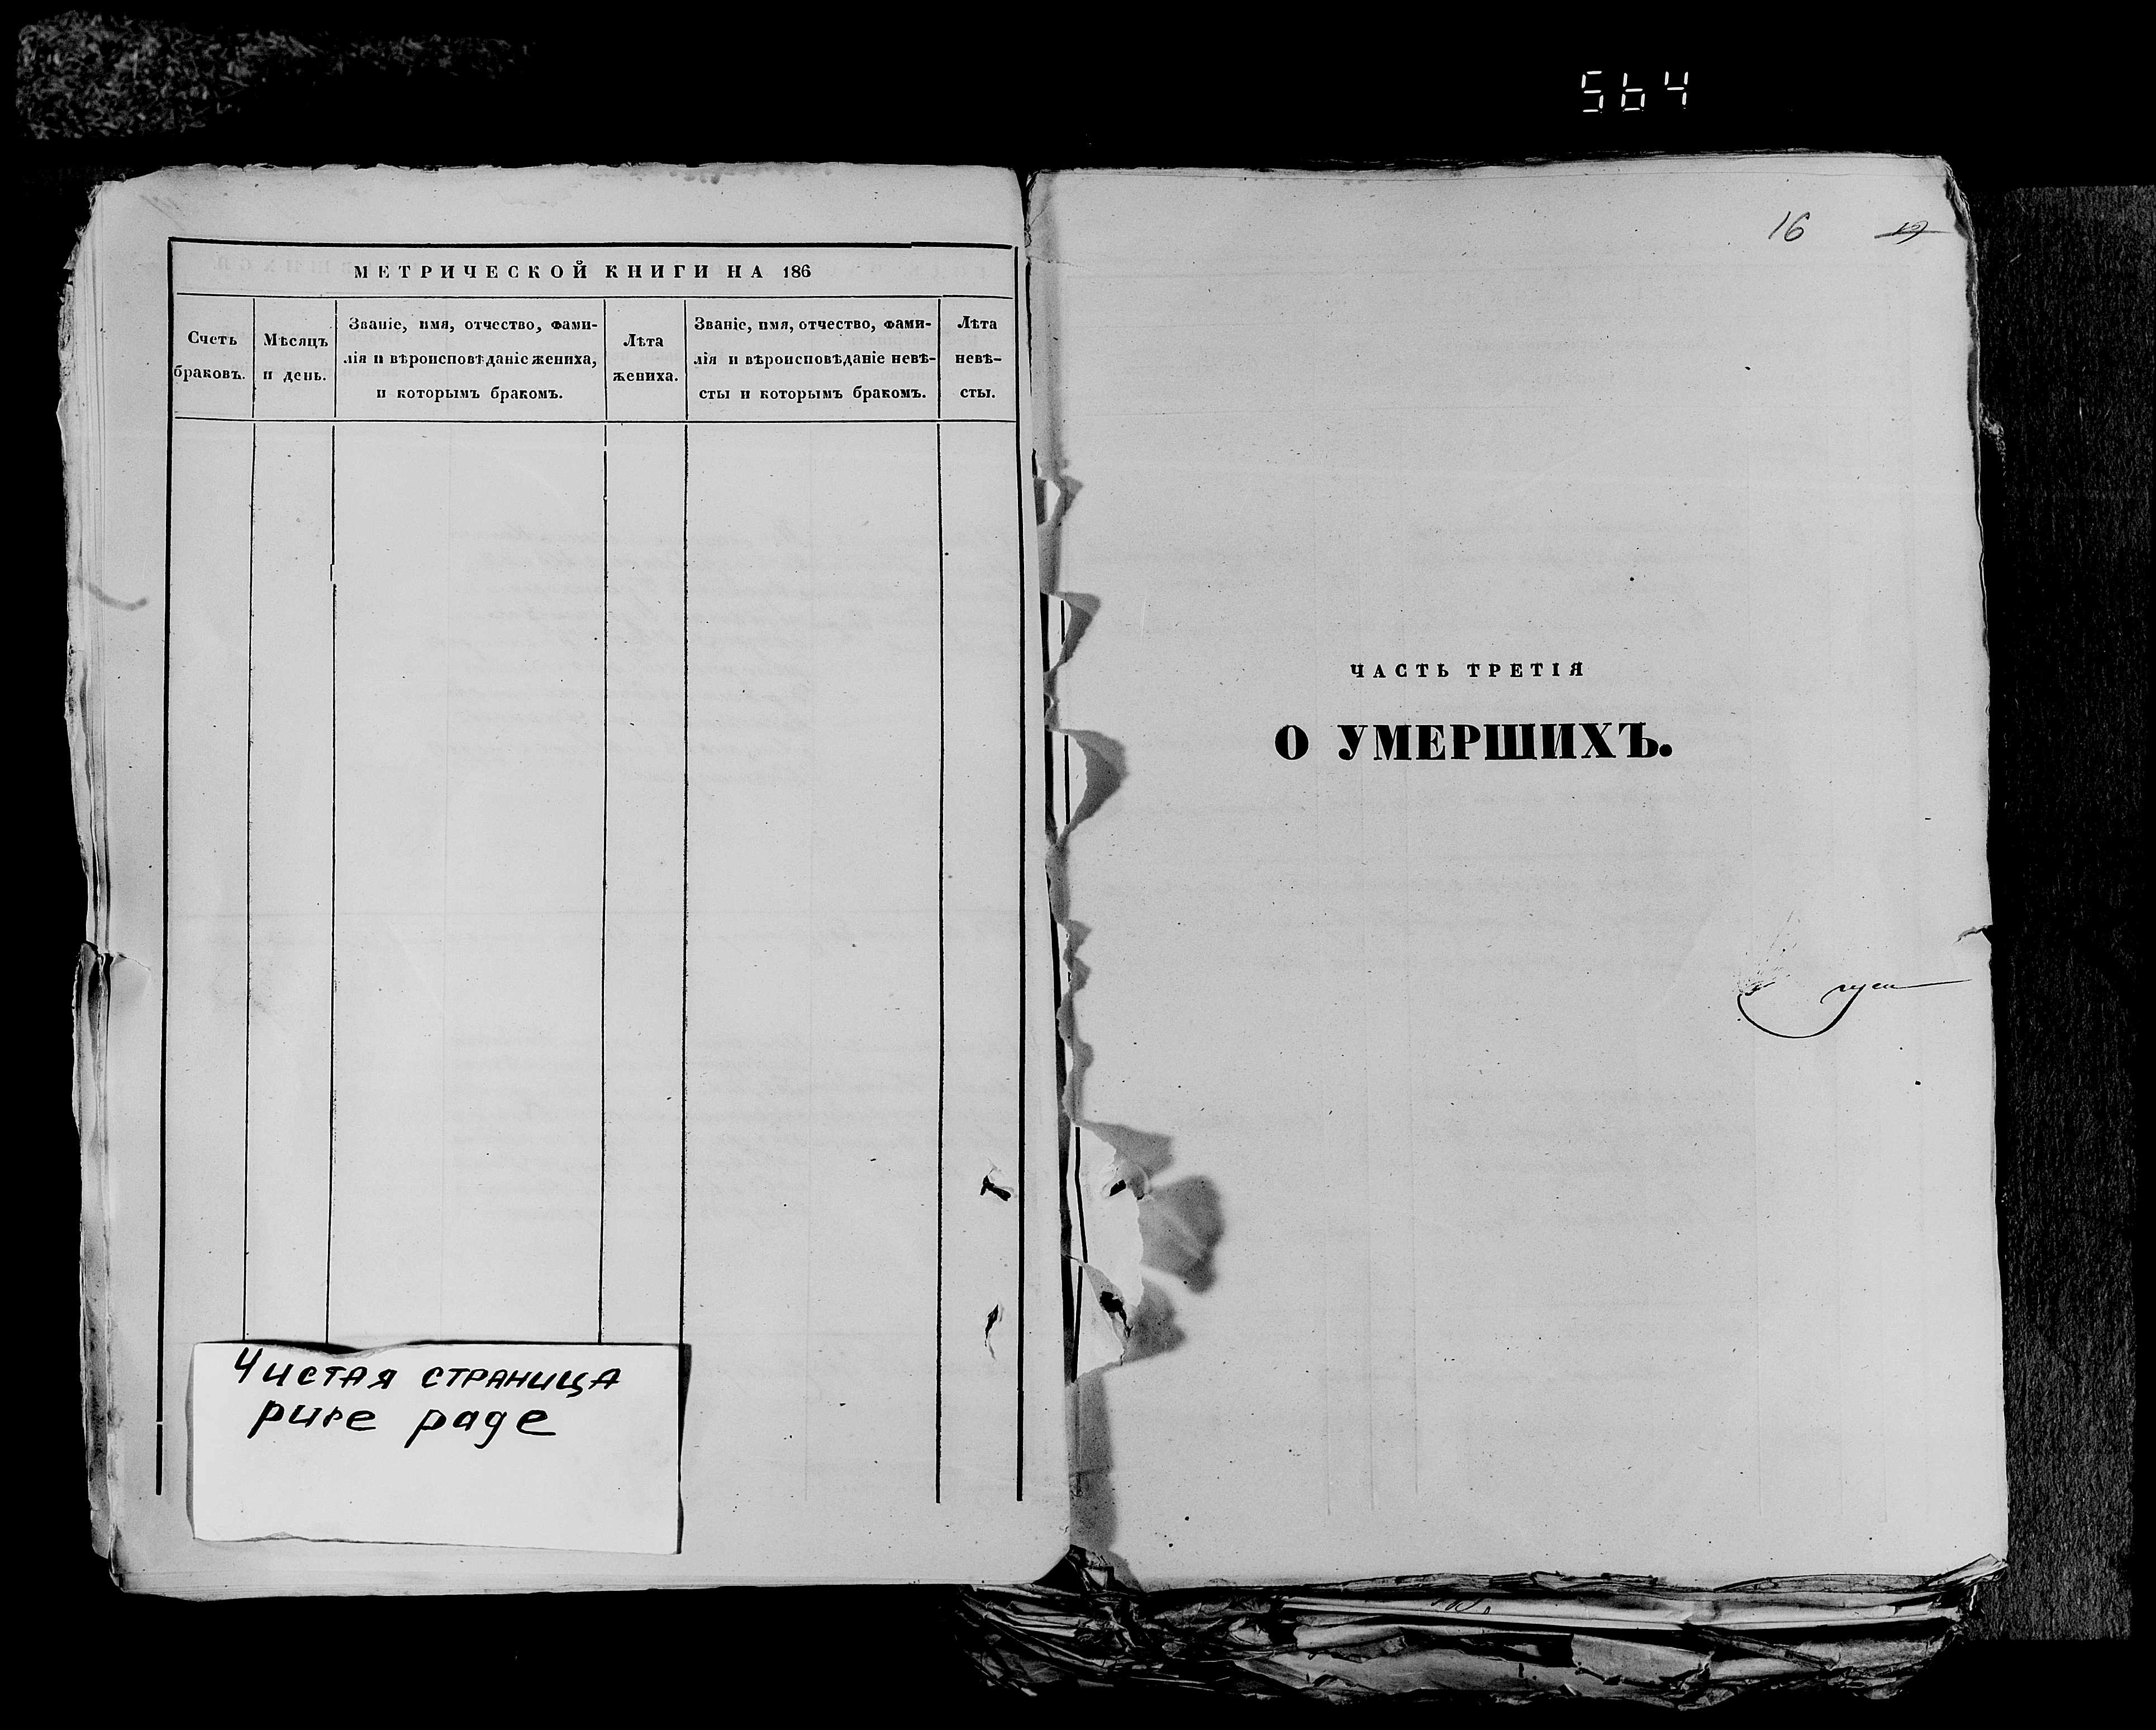 564
МЕТРИЧЕСКОЙ КНИГИ НА 186
Счетъ
браковъ.
Мѣсяцъ
и день.
Званіе, имя, отчество, фами-
лія и вѣроисповѣданіе жениха,
и которымъ бракомъ.
Лѣта
жениха.
Званіе, имя, отчество, фами-
лія и вѣроисповѣданіе невѣ-
сты и которымъ бракомъ.
Лѣта
невѣ-
сты.
Чистая страница
pure page
16
ЧАСТЬ ТРЕТІЯ
О УМЕРШИХЪ.